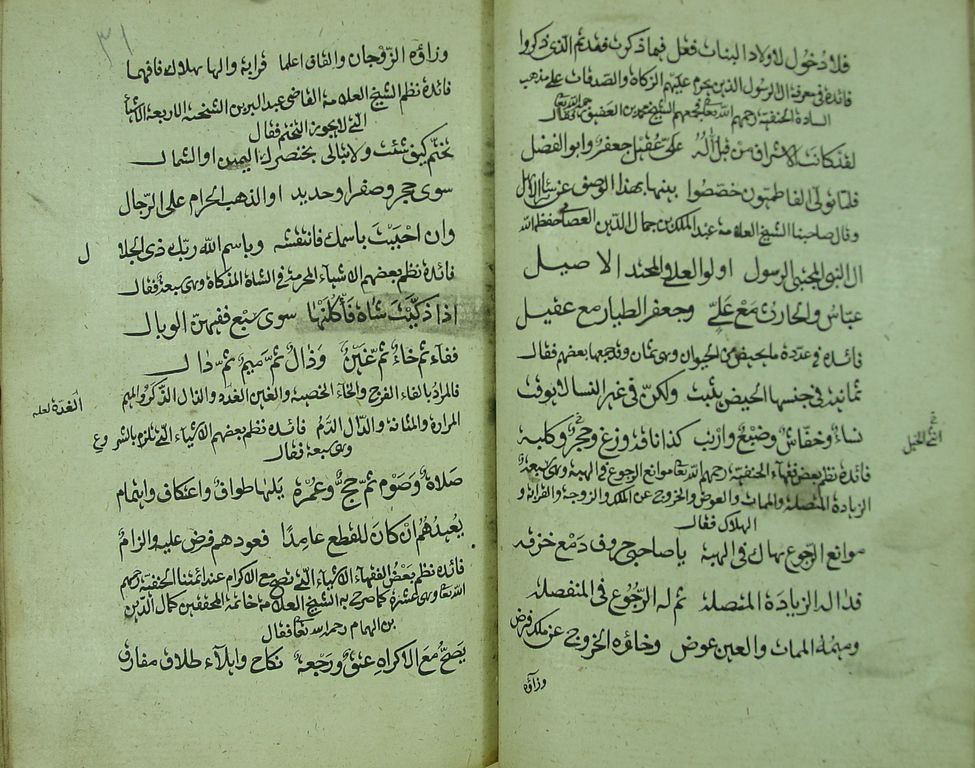 فلا دخول لاولاد البنات فعل فيما ذكرت فقد تم الذي ذكروا
فائدة في معرفة ال الرسول الذين يحرم عليهم الزكاة والصدقات على مذهب
السادة الحنفية رحمهم الله تعالى جمعهم الشيخ محمد بن العفيف فقال
لقد كانت الاشراف من قبل اله علي عقيل جعفر وابو الفضل
فلما تولى الفاطميون خصصوا بينها بهذا الوصف عن سائر الاهل
وقال صاحبنا الشيخ العلامة عبد الملك بن جمال الدين العصامي حفظه الله
ال النبي المجتبى الرسول اولو العلى والمحتد الاصيل
عباس والحارث مع علي وجعفر الطيار مع عقيل
فائدة في عدة ما يحيض من الحيوان وهي ثمان وقد جمعها بعضهم فقال
ثمانية في جنسها الحيض يثبت ولكن في غير النسا لا يوقت
نساء وخفاش وضبع وارنب كذا ناقة وزغ وحجر وكلبة
انثى الخيل
فائدة نظم بعض فقهاء الحنفية رحمهم الله تعالى موانع الرجوع في الهبة وهي سبعة
الزيادة المتصلة والممات والعوض والخروج عن الملك والزوجة والقرابة و
الهلاك فقال
موانع الرجوع يهاك في الهبة يا صاحبي حروف دمع خزقه
فدالها الزيادة المتصلة ثم له الرجوع في المنفصلة
وميمها الممات والعين عوض وخاؤه الخروج عن ملك فرض
وزاؤه
٣١
وزاؤه الزوجان والقاف اعلما قرابة والها هلاك فافهما
فائدة نظم الشيخ العلامة القاضي عبد البر بن الشحنة الاربعة الاشياء
التي لا يجوز التختم فقال
تختم كيف شئت ولا تبالي بخنصرك اليمين او الشمال
سوى حجر وصفر او حديد او الذهب الحرام على الرجال
وان احببت باسمك فانتقشه وباسم الله ربك ذي الجلا
ل
فائدة نظم بعضهم الاشياء المحرمة في الشاة المذكاة وهي سبعة فقال
اذا ذكيت شاة فأكلنها سوى سبع ففيهن الوبال
ففاء ثم خاء ثم غين وذال ثم ميم ثم دال
فالمراد بالفاء الفرج والخاء الخصية والغين الغده والذال الذكر والميم
الغدة لعله
المرارة والمثانة والدال الدم فائدة نظم بعضهم الاشياء التي تلزم بالشروع
وهي سبعة فقال
صلاة وصوم ثم حج وعمرة يليها طواف واعتكاف وايتمام
يعيدهم ان كان للقطع عامدا فعودهم فرض عليه والزام
فائدة نظم بعض الفقهاء الاشياء التي تصح مع الاكراه عند ائمتنا الحنفية رحمهم
الله تعالى وهي عشرة كما صرح به الشيخ العلامة خاتمة المحققين كمال الدين
بن الهمام رحمه الله تعالى فقال
يصح مع الاكراه عتق ورجعة نكاح وايلاء طلاق مفارق